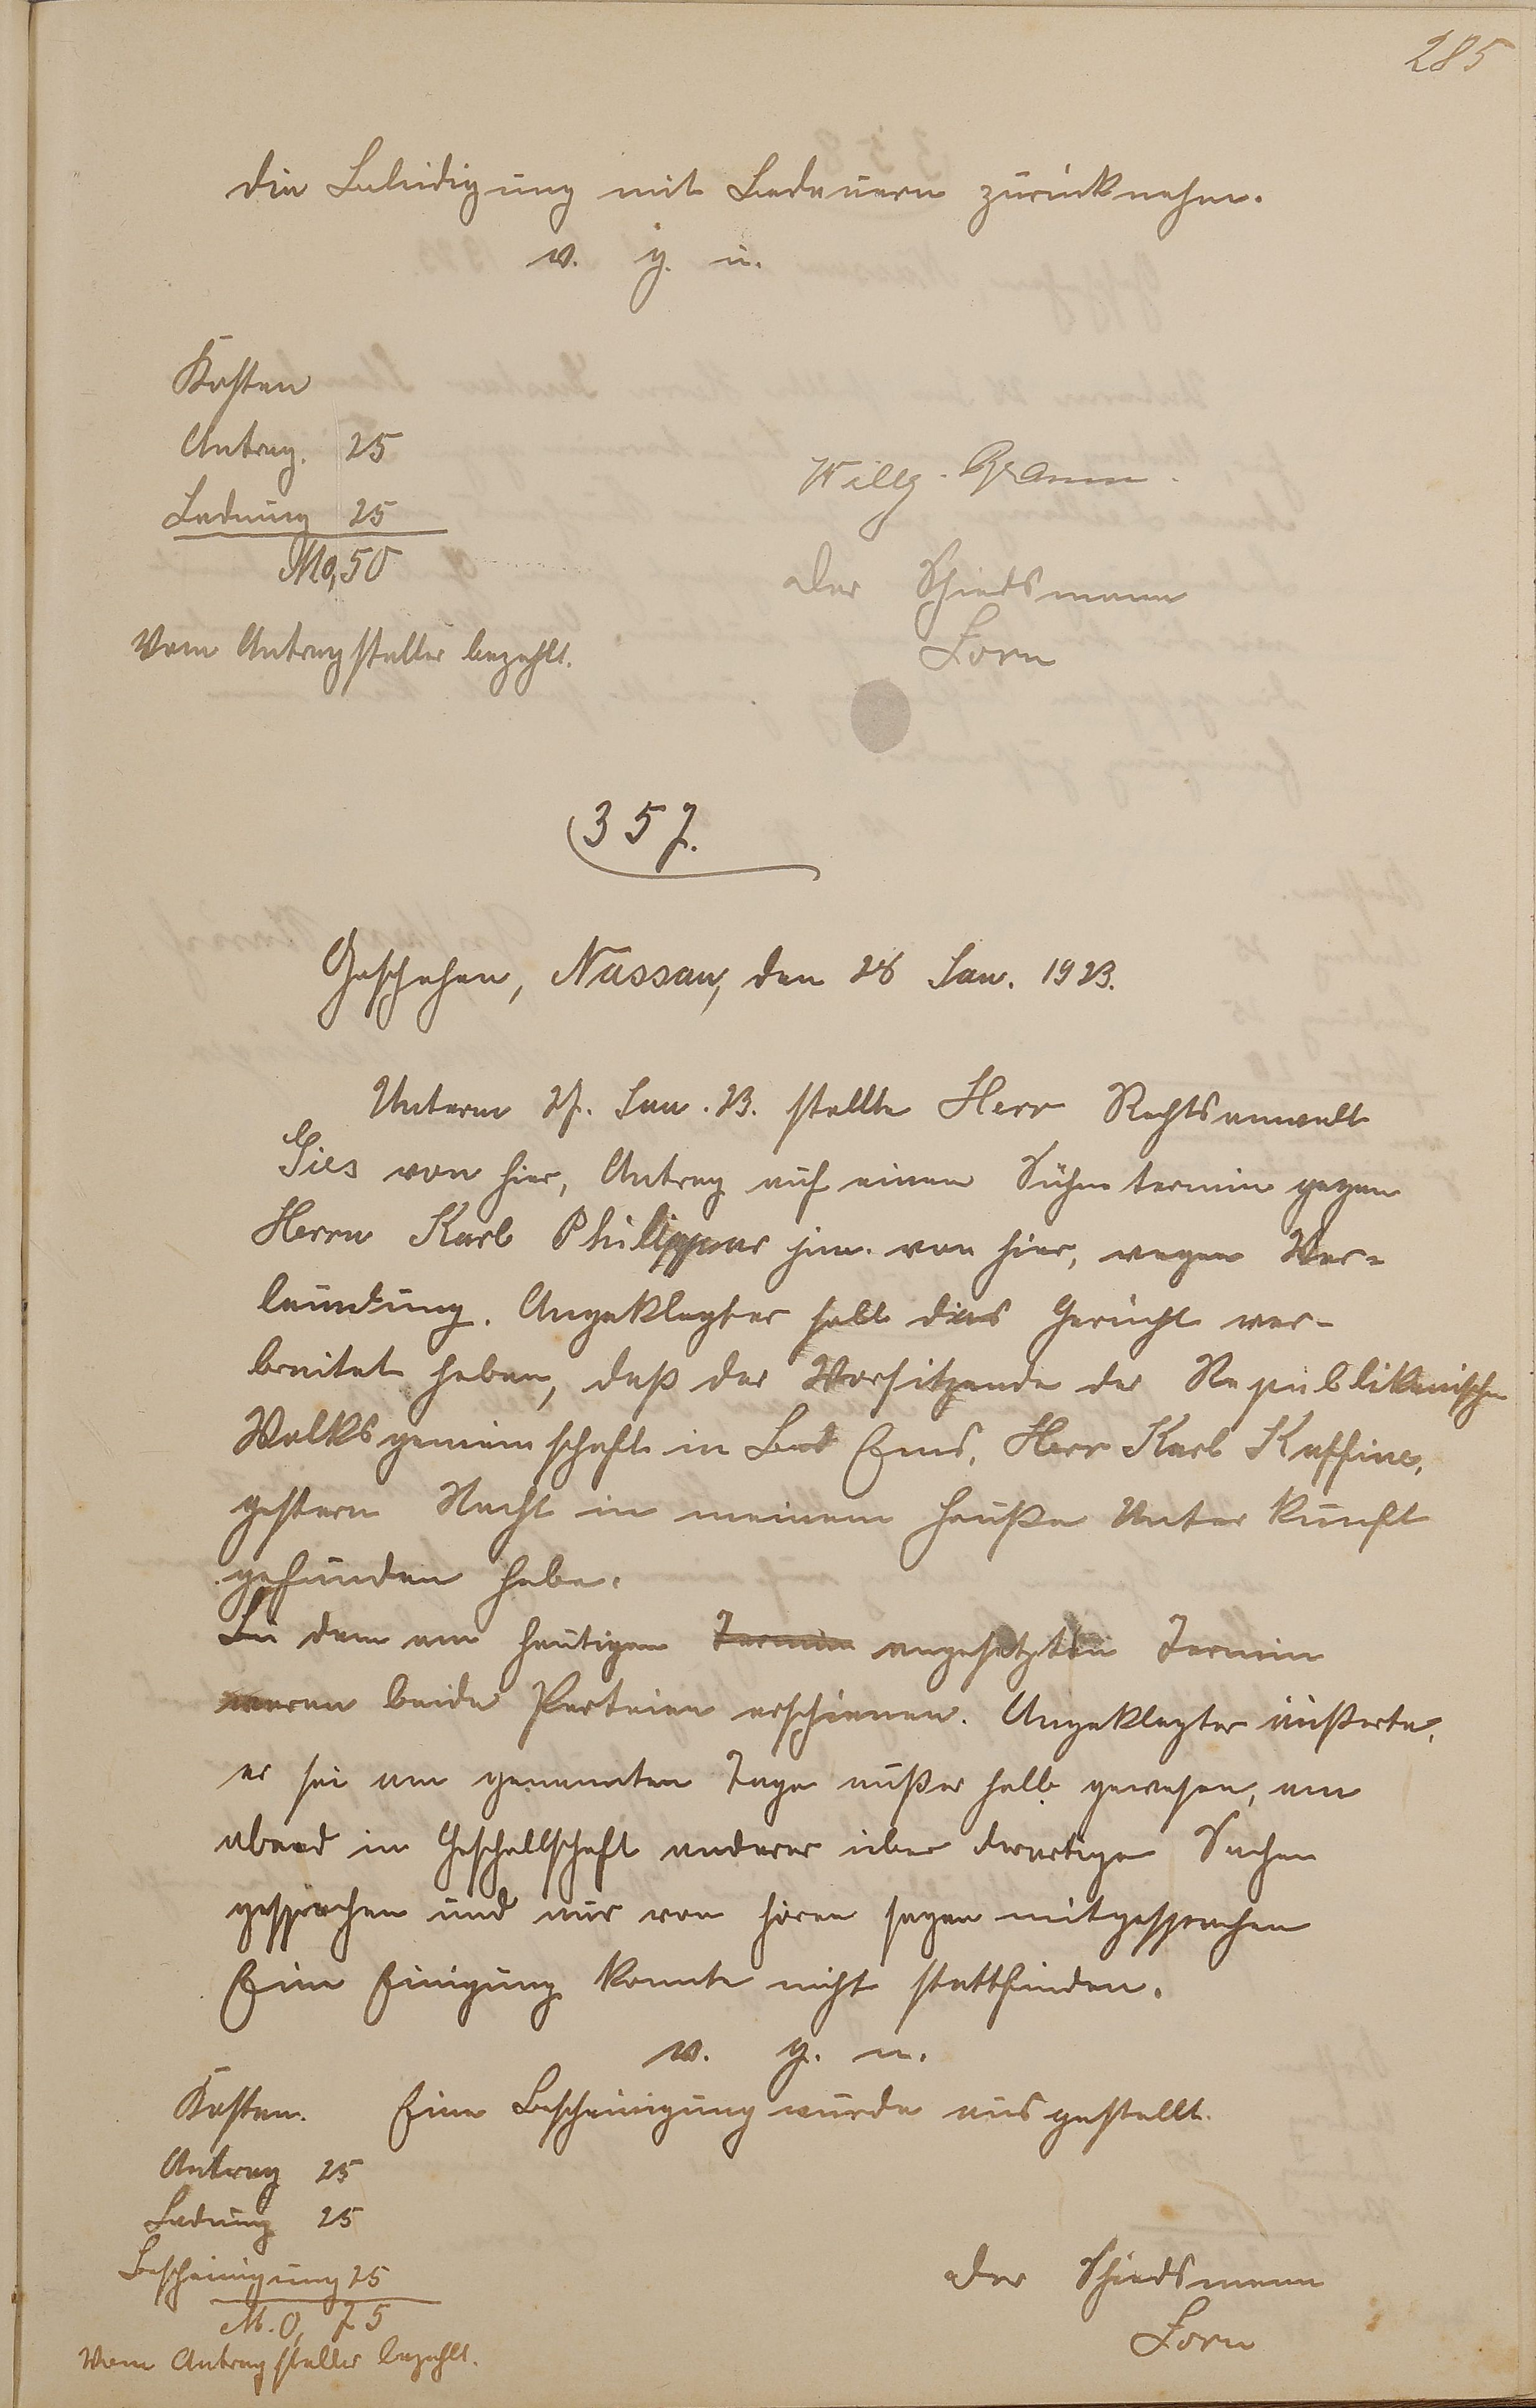 285
die Beleidigung mit Bedauern zurücknehme.
v. g. u.
Kosten
Antrag. 25
Ladung 25
M 0,50
Vom Antragsteller bezahlt.
Willy
Der Schiedsmann
Zorn
357.
Geschehen, Nassau, den 28 Jan. 1923.
Unterm 27. Jan. 23. stellte Herr Rechtsanwalt
Gies von hier, Antrag auf einen Sühnetermin gegen
Herrn Karl Philippar jun. von hier, wegen Ver-
leumdung. Angeklagter soll das Gerücht ver-
breitet haben, daß der Vorsitzende der Republikanischen
Volksgemeinschaft in Bad Ems, Herr Karl Kaffine,
gestern Nacht in meinem Hauße Unterkunft
gefunden habe.
In dem am heutigen Termin angesetzten Termin
waren beide Parteien erschienen. Angeklagter äußerte,
er sei am genannten Tage außerhalb gewesen, am
abend in Geschellschaft anderer über derartige Sachen
gesprochen und nur von hören sagen mitgesprochen
Eine Einigung konnte nicht stattfinden.
v. g. u.
Kosten. Eine Bescheinigung wurde ausgestellt.
Antrag 25
Ladung 25
Bescheinigung 25
M. 0,75
Vom Antragsteller bezahlt.
Der Schiedsmann
Zorn